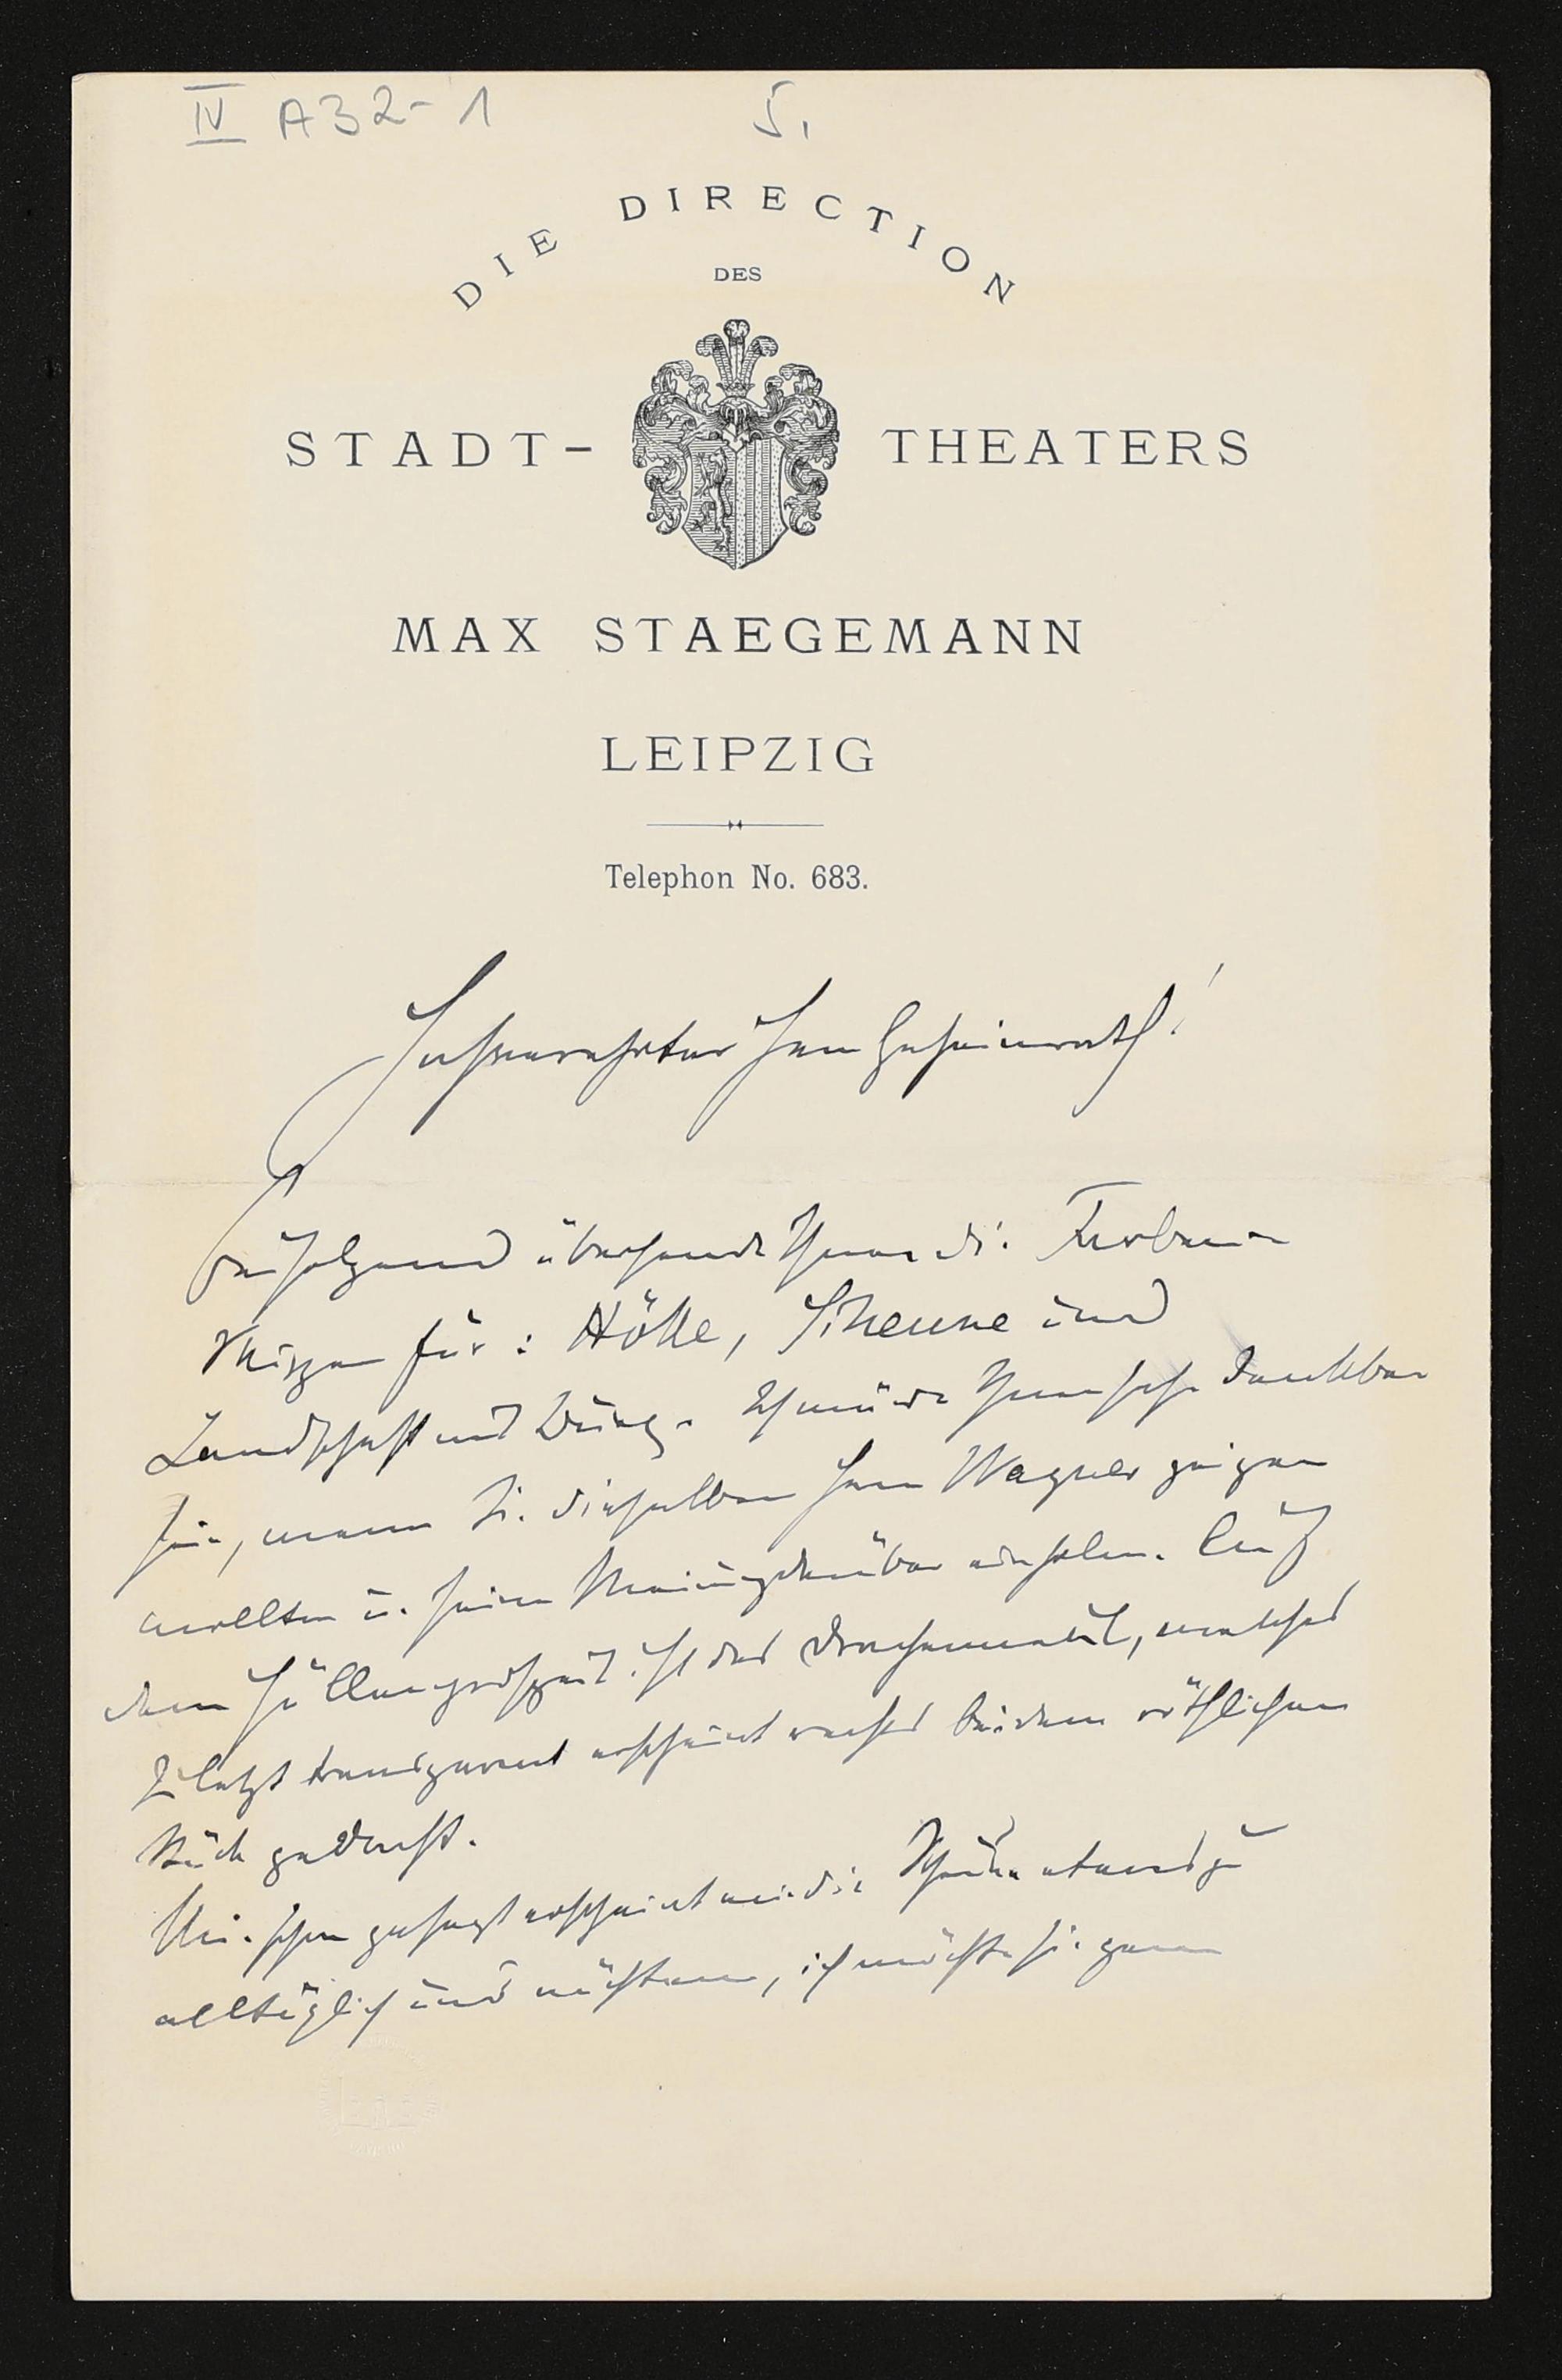 IV A32-1 5.
DIE DIRECTION
DES
STADT- THEATERS
MAX STAEGEMANN
LEIPZIG
Telephon No. 683.
Hochverehrter Herr Geheimrath!
Beifolgend übersende Ihnen die Farben
Skizzen für: Hölle, Scheune und
Landschaft mit Burg. Ich würde Ihnen sehr dankbar
sein, wenn Sie dieselben Herrn Wagner zeigen
wollten u. seine Meinung darüber einholen. Auf
dem Höllenprospect ist das Drachenmaul, welches
zuletzt transparent erscheint rechts bei dem röthlichen
Stück gedacht.
Wie schon gesagt erscheint mir die Scheune etwas zu
alltäglich und nüchtern, ich möchte sie gern